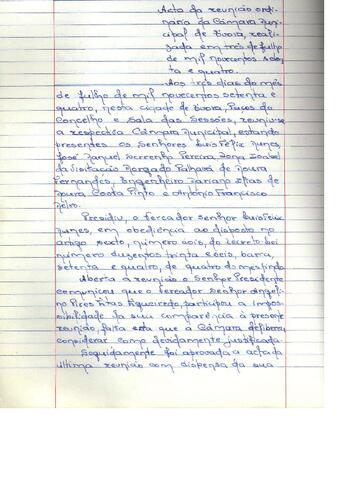 Acta da reunião ordi-
nária da Câmara Muni-
cipal de Évora, reali-
zada em três de julho
de mil novecentos seten-
ta e quatro.
Aos três dias do mês
de julho de mil novecentos setenta e
quatro, nesta cidade de Évora, Paços do
Concelho e Sala das Sessões, reuniu-se
a respectiva Câmara Municipal, estando
presentes os Senhores Luis Felix Nunes,
José Manuel Pereira Dona Isabel
da Visitação Morgado Palhavã de Moura
Fernandes, Engenheiro Mariano Elias de
Moura Costa Pinto e António Francisco
Melro.
Presidiu, o vereador Senhor Luis Felix
Nunes, em obediência ao disposto no
artigo sexto, número dois, do decreto lei
número duzentos trinta e seis, barra,
setenta e quatro, de quatro do mês findo.
Aberta a reunião o Senhor Presidente
comunicou que o vereador Senhor Angeli-
no Pires Figueiredo, participou a impos-
sibilidade da sua comparência à presente
reunião, falta esta que a Câmara deliberou,
considerar como devidamente justificada.
Seguidamente foi aprovada a acta da
última reunião com dispensa da sua